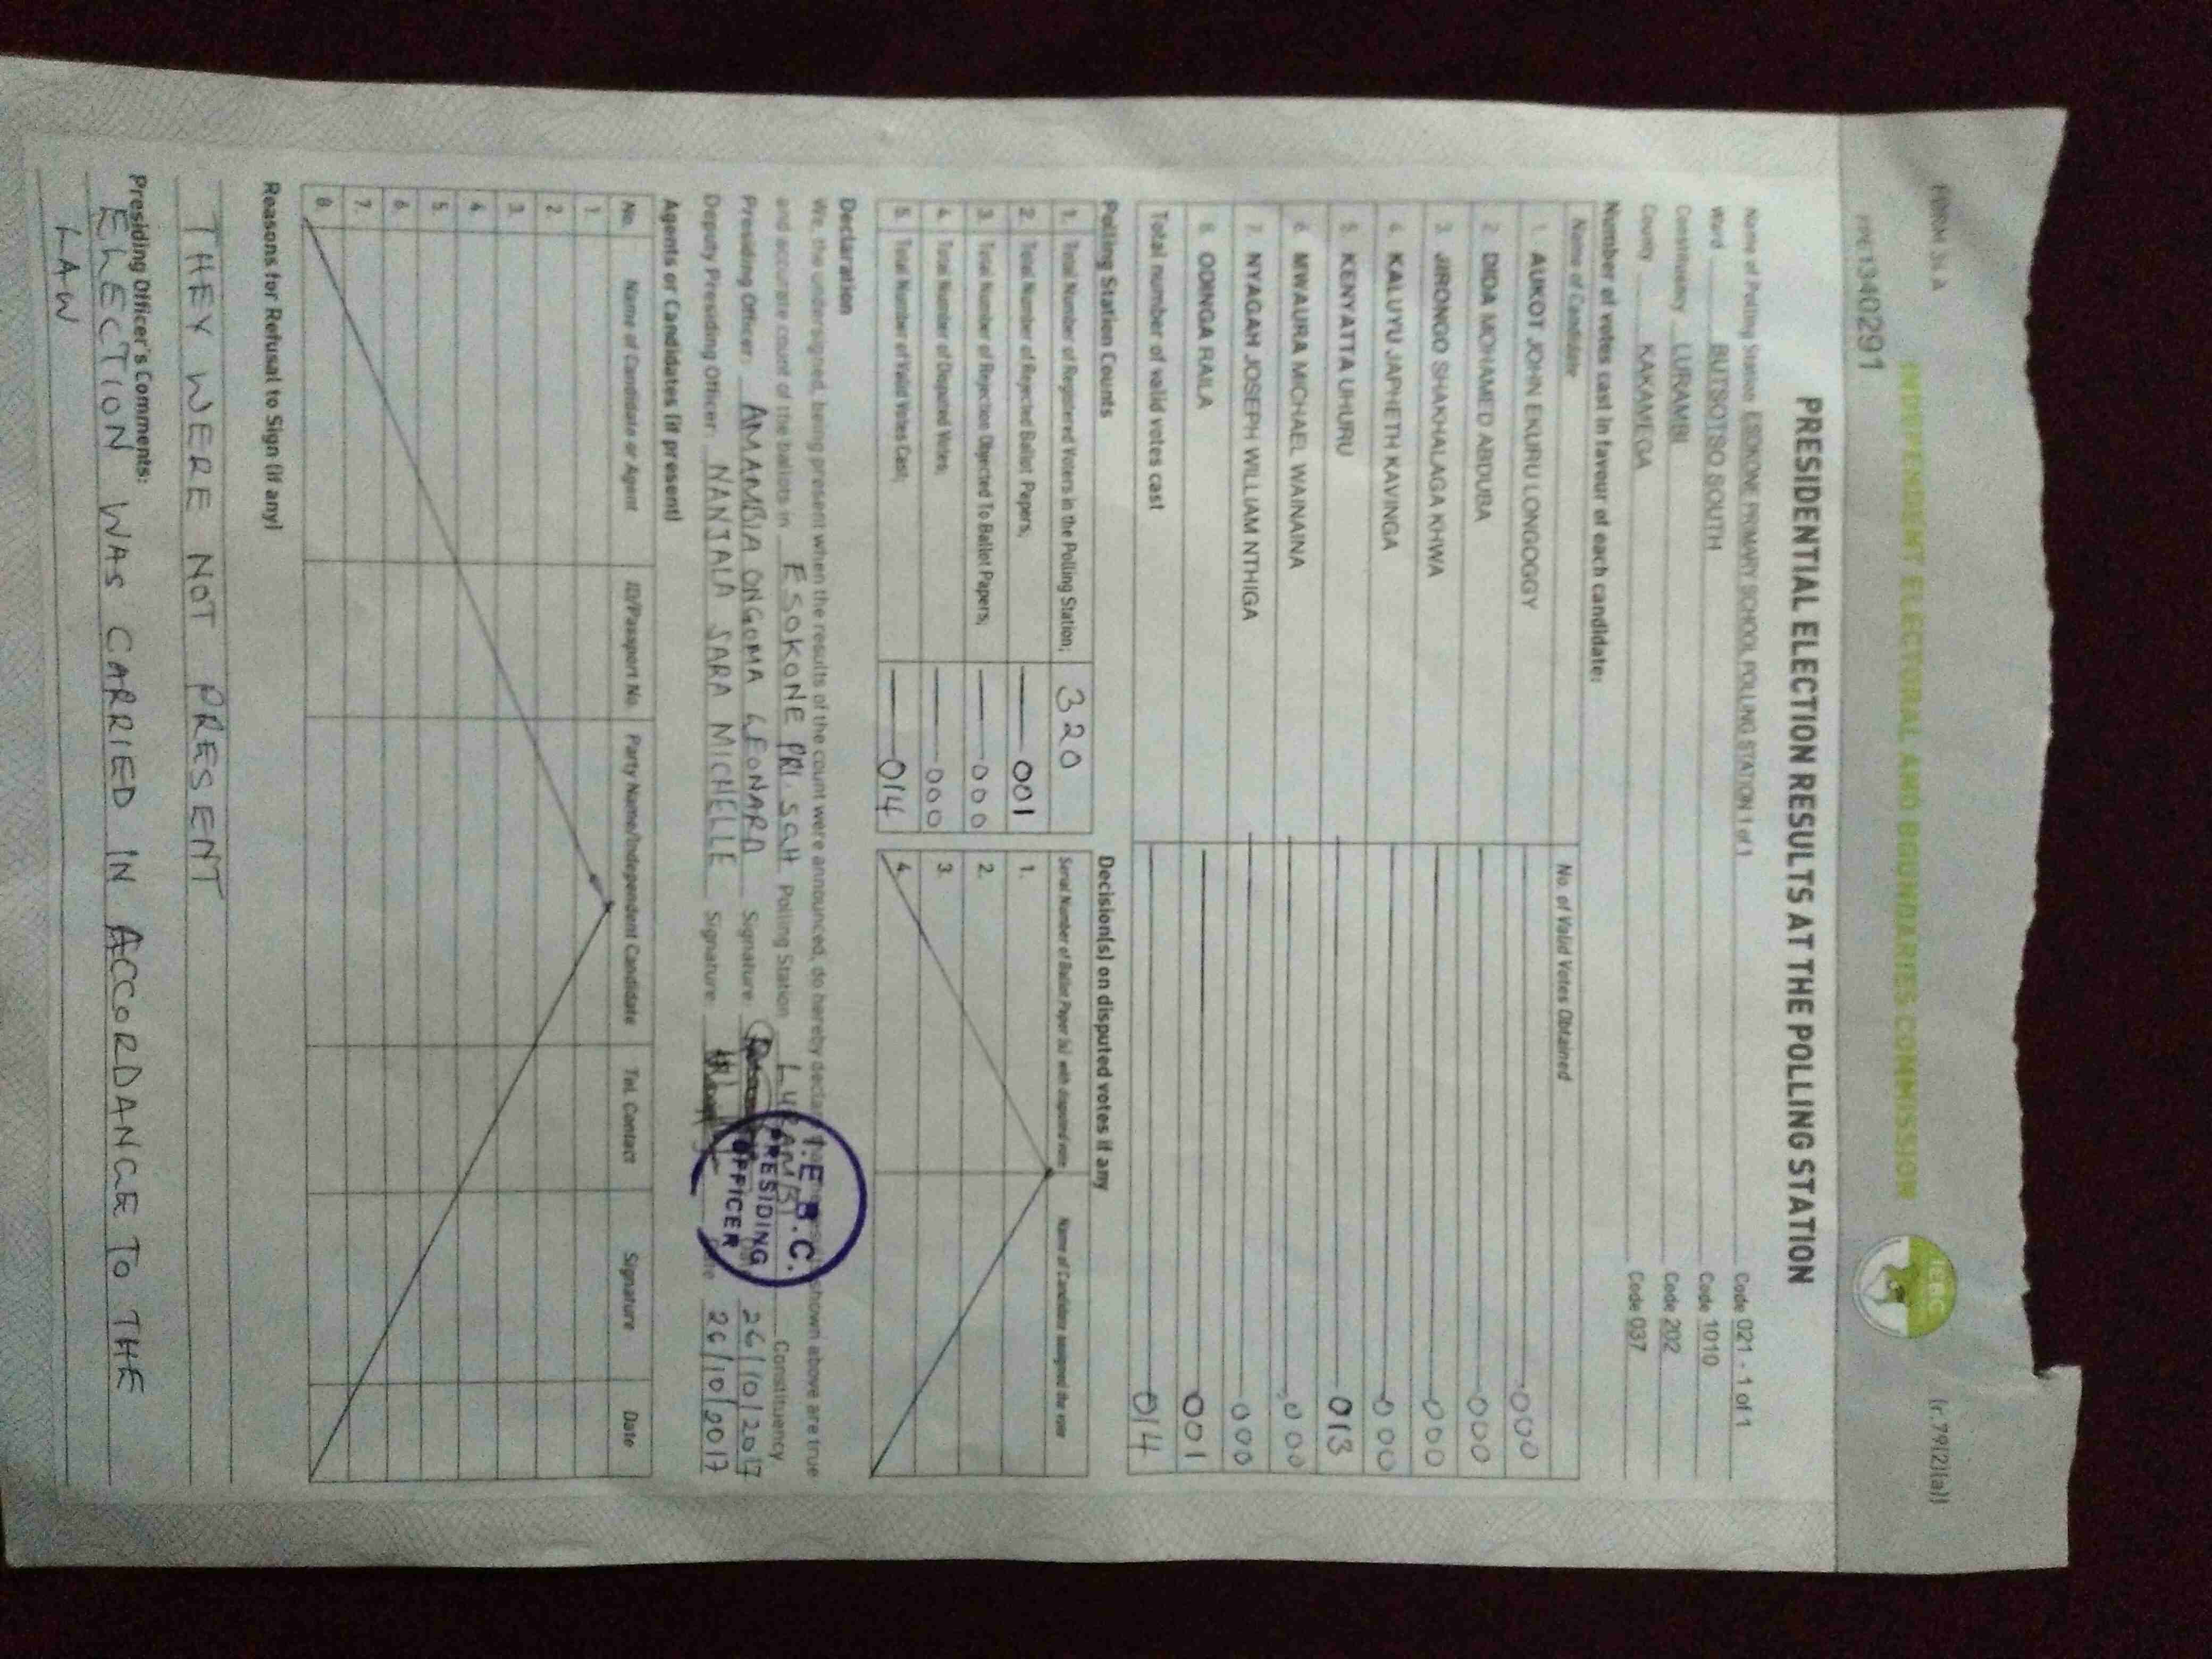 FORM 34 A
(r.79(2)(a))
INDEPENDENT ELECTORAL AND BOUNDARIES COMMISSION
IEBC
PRE1340291
PRESIDENTIAL ELECTION RESULTS AT THE POLLING STATION
Name of Polling Station ESOKONE PRIMARY SCHOOL POLLING STATION 1 of 1 Code 021 - 1 of 1
Ward BUTSOTSO SOUTH Code 1010
Constituency LURAMBI Code 202
County KAKAMEGA Code 037
Number of votes cast in favour of each candidate:
Name of Candidate No. of Valid Votes Obtained
1. AUKOT JOHN EKURU LONGOGGY 000
2. DIDA MOHAMED ABDUBA 000
3. JIRONGO SHAKHALAGA KHWA 000
4. KALUYU JAPHETH KAVINGA 000
5. KENYATTA UHURU 013
6. MWAURA MICHAEL WAINAINA 000
7. NYAGAH JOSEPH WILLIAM NTHIGA 000
8. ODINGA RAILA 001
Total number of valid votes cast 014
Polling Station Counts
1. Total Number of Registered Voters in the Polling Station; 320
2. Total Number of Rejected Ballot Papers; 001
3. Total Number of Rejection Objected To Ballot Papers; 000
4. Total Number of Disputed Votes; 000
5. Total Number of Valid Votes Cast; 014
Decision(s) on disputed votes if any
Serial Number of Ballot Paper (s) with disputed vote Name of Candidate assigned the vote
1.
2.
3.
4.
Declaration
We, the undersigned, being present when the results of the count were announced, do hereby declare shown above are true
and accurate count of the ballots in ESOKONE PRI. SCH Polling Station LURAMBI Constituency
Presiding Officer: AMAMBIA ONGOMA LEONARD Signature 26/10/2017
Deputy Presiding Officer: NANJALA SARA MICHELLE Signature Date 26/10/2017
I.E.B.C.
PRESIDING
OFFICER
Agents or Candidates (if present)
No. Name of Candidate or Agent ID/Passport No. Party Name/Independent Candidate Tel. Contact Signature Date
1.
2.
3.
4.
5.
6.
7.
8.
Reasons for Refusal to Sign (if any)
THEY WERE NOT PRESENT
Presiding Officer's Comments:
ELECTION WAS CARRIED IN ACCORDANCE TO THE
LAW